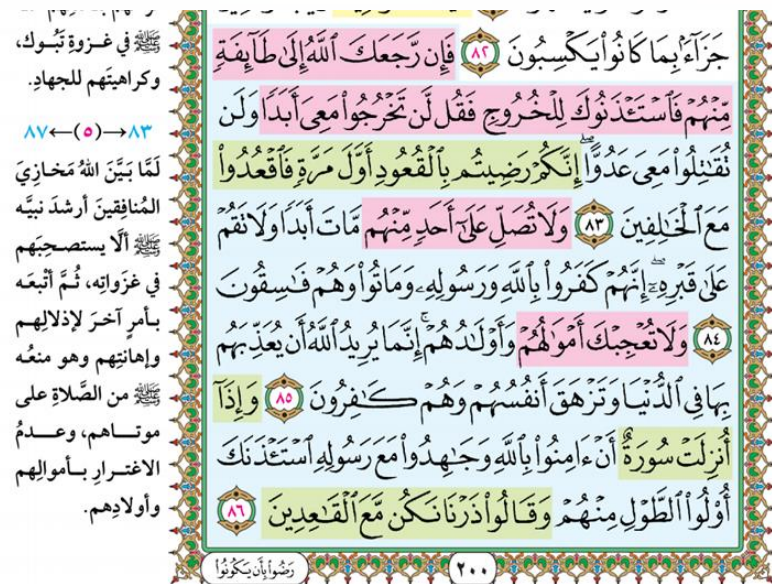 جَزَآءَۢ بِمَا كَانُواْ يَكْسِبُونَ ٨٢ فَإِن رَّجَعَكَ ٱللَّهُ إِلَىٰ طَآئِفَةٖ
مِّنْهُمْ فَٱسْتَـْٔذَنُوكَ لِلْخُرُوجِ فَقُل لَّن تَخْرُجُواْ مَعِيَ أَبَدٗا وَلَن
تُقَٰتِلُواْ مَعِيَ عَدُوًّاۖ إِنَّكُمْ رَضِيتُم بِٱلْقُعُودِ أَوَّلَ مَرَّةٖ فَٱقْعُدُواْ
مَعَ ٱلْخَٰلِفِينَ ٨٣ وَلَا تُصَلِّ عَلَىٰٓ أَحَدٖ مِّنْهُم مَّاتَ أَبَدٗا وَلَا تَقُمْ
عَلَىٰ قَبْرِهِۦٓۖ إِنَّهُمْ كَفَرُواْ بِٱللَّهِ وَرَسُولِهِۦ وَمَاتُواْ وَهُمْ فَٰسِقُونَ
٨٤ وَلَا تُعْجِبْكَ أَمْوَٰلُهُمْ وَأَوْلَٰدُهُمْۚ إِنَّمَا يُرِيدُ ٱللَّهُ أَن يُعَذِّبَهُم
بِهَا فِي ٱلدُّنْيَا وَتَزْهَقَ أَنفُسُهُمْ وَهُمْ كَٰفِرُونَ ٨٥ وَإِذَآ
أُنزِلَتْ سُورَةٌ أَنْ ءَامِنُواْ بِٱللَّهِ وَجَٰهِدُواْ مَعَ رَسُولِهِ ٱسْتَـْٔذَنَكَ
أُوْلُواْ ٱلطَّوْلِ مِنْهُمْ وَقَالُواْ ذَرْنَا نَكُن مَّعَ ٱلْقَٰعِدِينَ ٨٦
٢٠٠
رَضُواْ بِأَن يَكُونُواْ
ﷺ في غزوةِ تَبُوك،
وكراهيتَهم للجهادِ.
٨٣→(٥)←٨٧
لَمَّا بَيَّنَ اللهُ مَخازِيَ
المُنافِقينَ أرشدَ نبيَّه
ﷺ ألَّا يستصحِبَهم
في غزَواتِه، ثُمَّ أتْبعَه
بأمرٍ آخرَ لإذلالِهم
وإهانتِهم وهو منعُه
ﷺ من الصَّلاةِ على
موتاهم، وعدمُ
الاغترارِ بأموالِهم
وأولادِهم.